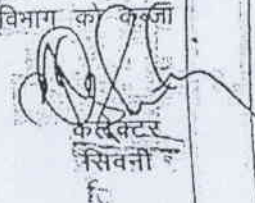 विभाग को कब्जा
कलेक्टर
सिवनी